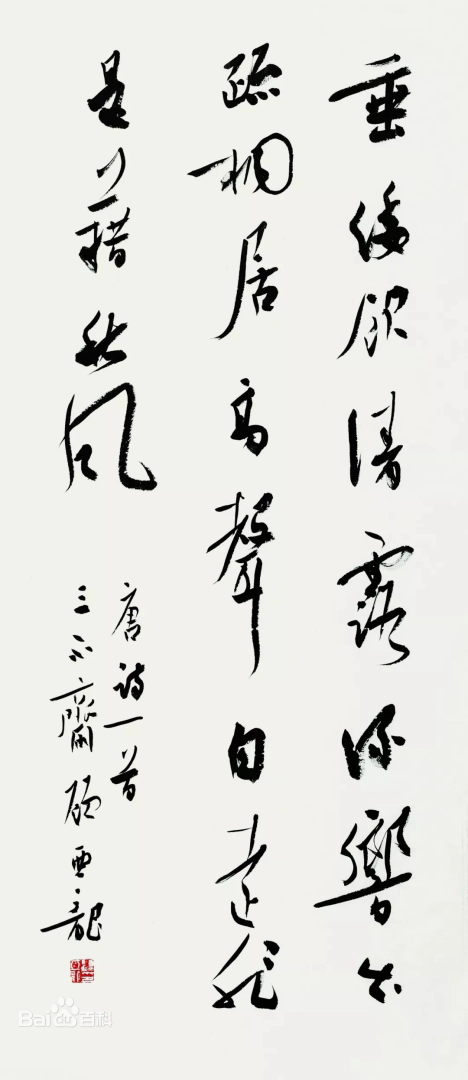 垂緌飲清露流響出
疏桐居高聲自遠非
是藉秋風
唐詩一首
三不齋顧亞龍
Bai百科